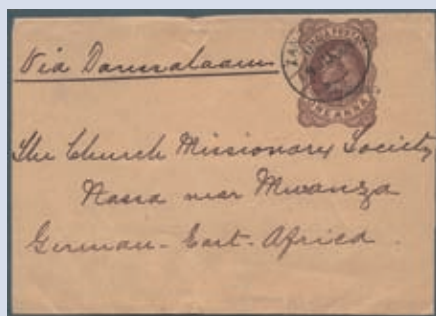 Via Daressalaam
INDIA POSTAGE
ZAN
ONE ANNA
The Church Missionary Society
Nassa near Mwanza
German-East-Africa.